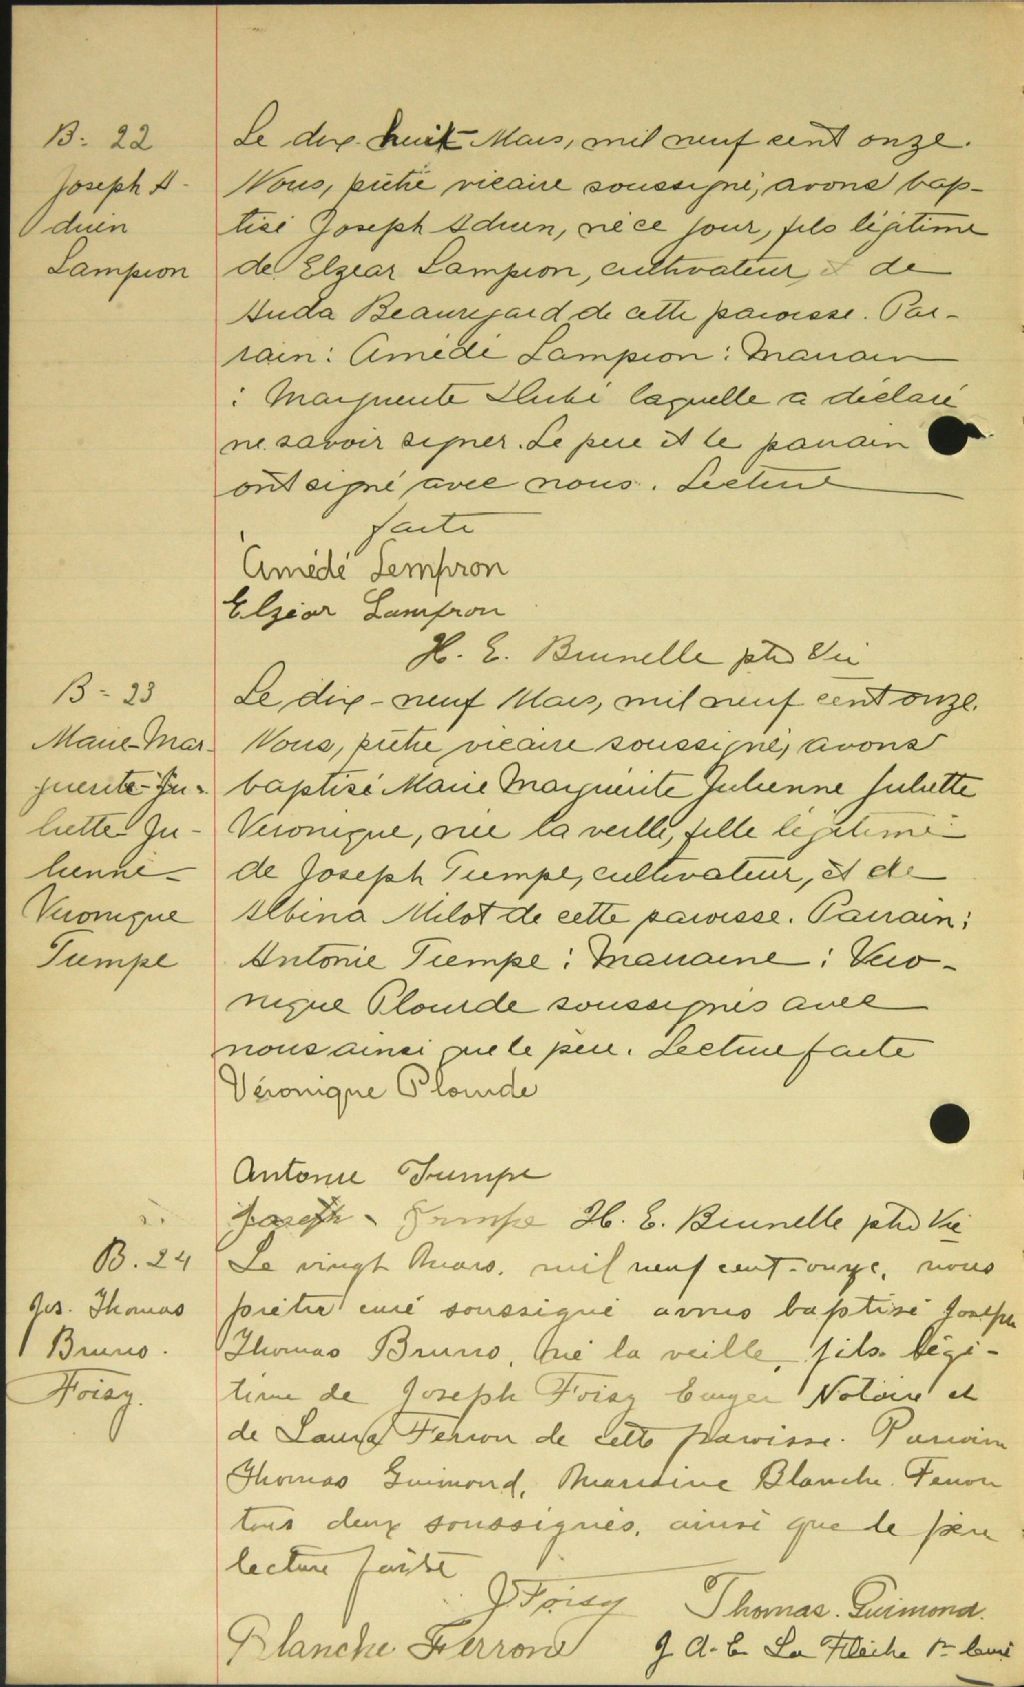 B- 22
Joseph A-
drien
Lampron
Le dix-huit Mars, mil neuf cent onze.
Nous, prêtre vicaire soussigné, avons bap-
tisé Joseph Adrien, né ce jour, fils légitime
de Elzear Lampron, cultivateur, et de
Auda Beauregard de cette paroisse. Par-
rain: Amédé Lampron: Marraine
: Marguerite Dubé laquelle a déclaré
ne savoir signer. Le père et le parrain
ont signé avec nous. Lecture
faite
Amédé Lempron
Elzéar Lampron
H. E. Brunelle ptre Vic
B- 23
Marie-Mar-
guerite-Ju-
liette-Ju-
lienne-
Veronique
Trempe
Le dix-neuf Mars, mil neuf cent onze.
Nous, prêtre vicaire soussigné, avons
baptisé Marie Marguérite Julienne Juliette
Veronique, née la veille, fille légitime
de Joseph Trempe, cultivateur, et de
Albina Milot de cette paroisse. Parrain:
Antonie Trempe: Marraine: Vero-
nique Plourde soussignés avec
nous ainsi que le père. Lecture faite
Véronique Plourde
Antonie Trempe
Joseph Trempe H. E. Brunelle ptre Vic
B. 24
Jos. Thomas
Bruno.
Foisy.
Le vingt Mars, mil neuf cent-onze, nous
prêtre curé soussigné avons baptisé Joseph
Thomas Bruno, né la veille, fils légi-
time de Joseph Foisy Notaire et
de Laura Ferron de cette paroisse. Parrain
Thomas Guimond, Marraine Blanche Ferron
tous deux soussignés, ainsi que le père
lecture faite
J Foisy Thomas. Guimond.
Blanche Ferron J A-E La Flèche ptre Curé